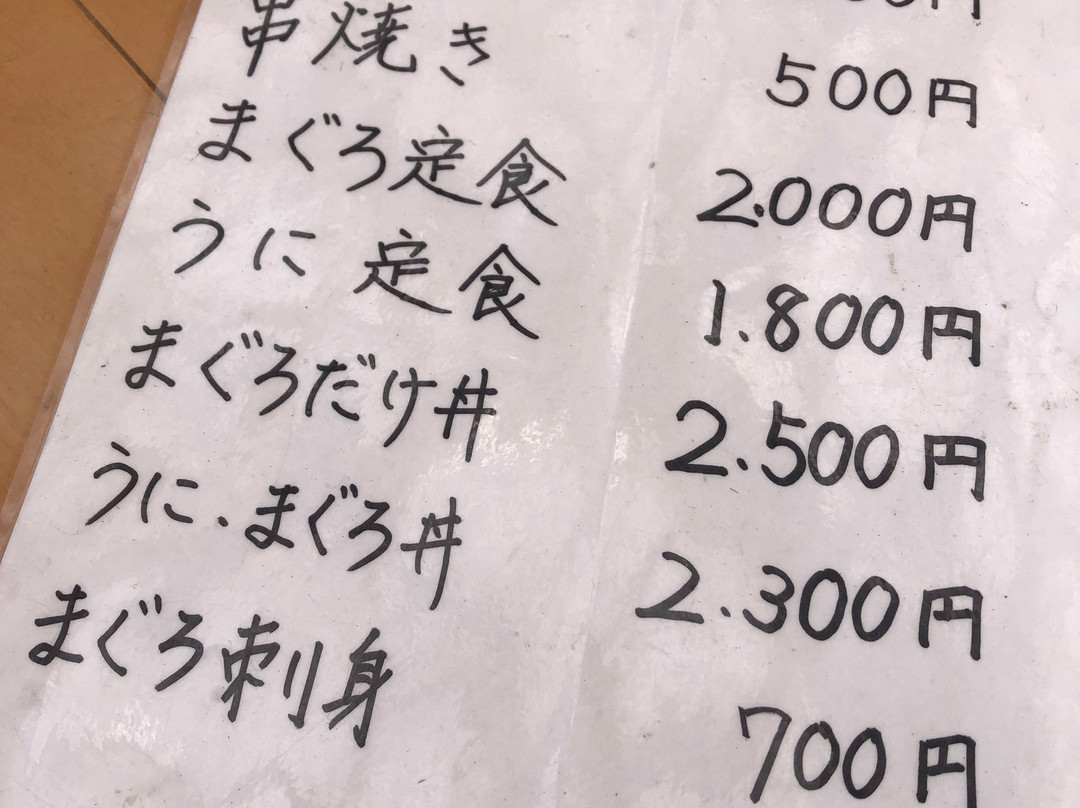 串焼き 500円
まぐろ定食 2.000円
うに定食 1.800円
まぐろだけ丼 2.500円
うに・まぐろ丼 2.300円
まぐろ刺身 700円